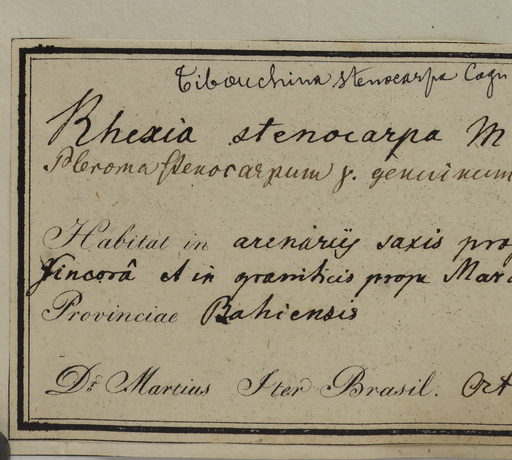 Tibouchina stenocarpa Cogn
Rhexia stenocarpa M
Pleroma stenocarpum γ. genuinum
Habitat in arenariis saxis prop
Sincorâ et in graniticis prope Mara
Provinciae Bahiensis
Dr. Martius Iter Brasil. Oct